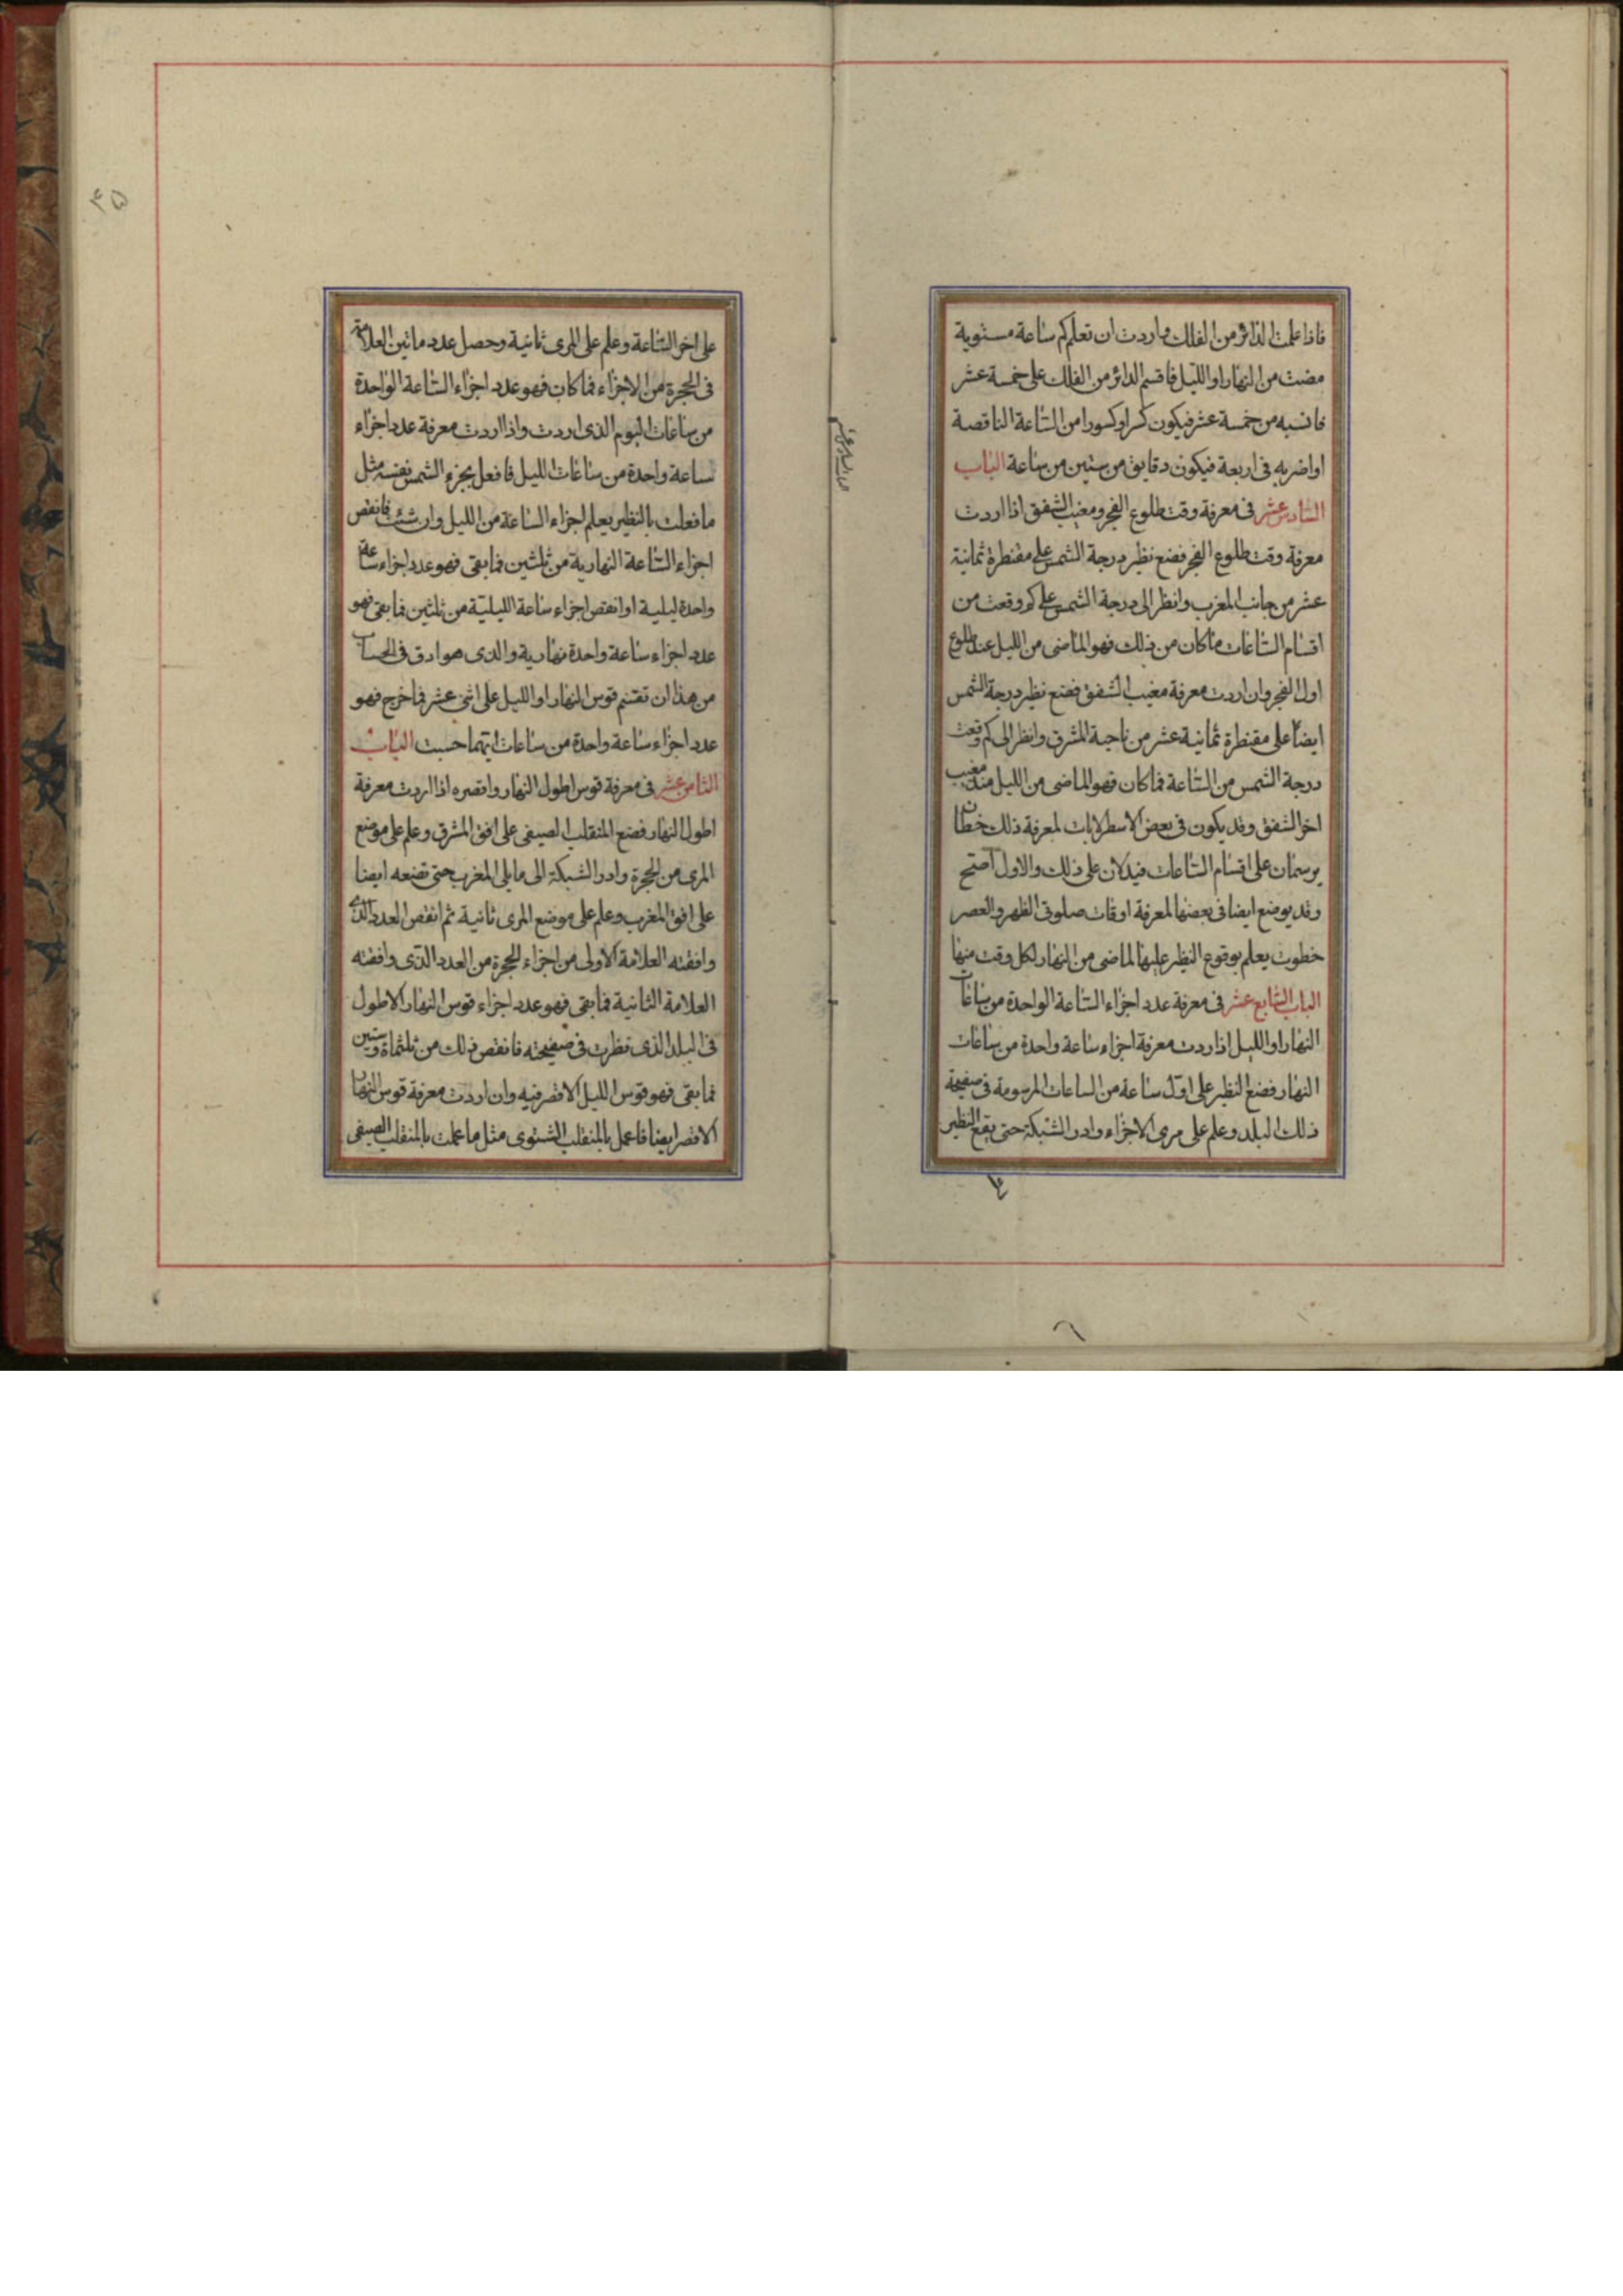 فاذا علمت الدائر من الفلك واردت ان تعلم كم ساعة مستوية
مضت من النهار او الليل فاقسم الدائر من الفلك على خمسة عشر
فانسبه من خمسة عشر فيكون كسرا وكسورا من الساعة الناقصة
او اضربه فى اربعة فيكون دقايق من ستين من ساعة الباب
السادس عشر فى معرفة وقت طلوع الفجر ومغيب الشفق اذا اردت
معرفة وقت طلوع الفجر فضع نظير درجة الشمس على مقنطرة ثمانية
عشر من جانب المغرب وانظر الى درجة الشمس على كم وقعت من
اقسام الساعات فما كان من ذلك فهو الماضى من الليل عند طلوع
اول الفجر وان اردت معرفة مغيب الشفق فضع نظير درجة الشمس
ايضا على مقنطرة ثمانية عشر من ناحية المشرق وانظر الى كم وقعت
درجة الشمس من الساعة فما كان فهو الماضى من الليل منذ مغيب
اخر الشفق وقد يكون فى بعض الاسطرلابات لمعرفة ذلك خطان
يرسمان على اقسام الساعات فيدلان على ذلك والاول اصح
وقد يوضع ايضا فى بعضها لمعرفة اوقات صلوتى الظهر والعصر
خطوت يعلم بوقوع النظير عليها الماضى من النهار لكل وقت منها
الباب السابع عشر فى معرفة عدد اجزاء الساعة الواحدة من ساعات
النهار او الليل اذا اردت معرفة اجزاء ساعة واحدة من ساعات
النهار فضع النظير على اول ساعة من الساعات المرسومة فى صفيحة
ذلك البلد وعلم على مرى الاجزاء وادر الشبكة حتى يقع النظير
٣٥
على اخر الساعة وعلم على المرى ثانية وحصل عدد ما بين العلامة
فى الحجرة من الاجزاء فما كان فهو عدد اجزاء الساعة الواحدة
من ساعات اليوم الذى اردت واذا اردت معرفة عدد اجزاء
ساعة واحدة من ساعات الليل فافعل بجزء الشمس نفسه مثل
ما فعلت بالنظير يعلم اجزاء الساعة من الليل وان شئت فانقص
اجزاء الساعة النهارية من ثلثين فما بقى فهو عدد اجزاء ساعة
واحدة ليلية او انقص اجزاء ساعة الليلية من ثلثين فما بقى فهو
عدد اجزاء ساعة واحدة نهارية والذى هو ادق فى الحساب
من هذا ان تقسم قوس النهار او الليل على اثنى عشر فما خرج فهو
عدد اجزاء ساعة واحدة من ساعات ايهما حسبت الباب
الثامن عشر فى معرفة قوس اطول النهار واقصره اذا اردت معرفة
اطول النهار فضع المنقلب الصيفى على افق المشرق وعلم على موضع
المرى من الحجرة وادر الشبكة الى ما يلى المغرب حتى تضعه ايضا
على افق المغرب وعلم على موضع المرى ثانية ثم انقص العدد الذى
وافقته العلامة الاولى من اجزاء الحجرة من العدد الذى وافقته
العلامة الثانية فما بقى فهو عدد اجزاء قوس النهار الاطول
فى البلد الذى نظرت فى صفيحته فانقص ذلك من ثلثماة وستين
فما بقى فهو قوس الليل الاقصر فيه وان اردت معرفة قوس النهار
الاقصر ايضا فاعمل بالمنقلب الشتوى مثل ما عملت بالمنقلب الصيفى